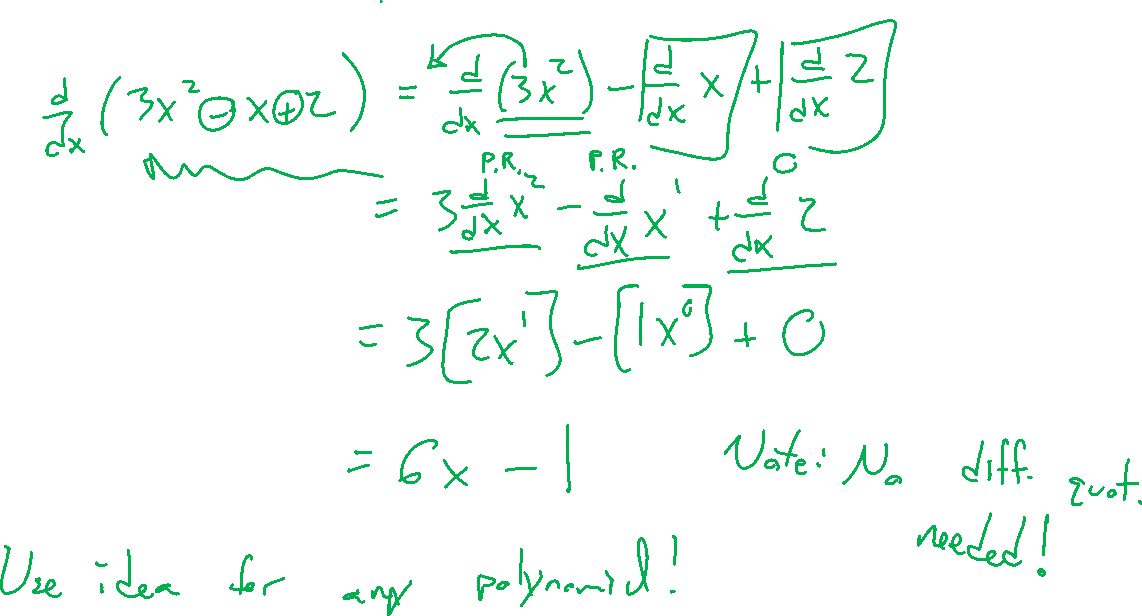 d/dx (3x² ⊖ x ⊕ 2) = d/dx (3x²) − d/dx x + d/dx 2
P.R. P.R. 0
= 3 d/dx x² − d/dx x¹ + d/dx 2
= 3[2x¹] − [1x⁰] + 0
= 6x − 1
Note: No diff. quot.
needed!
Use idea for any polynomial!